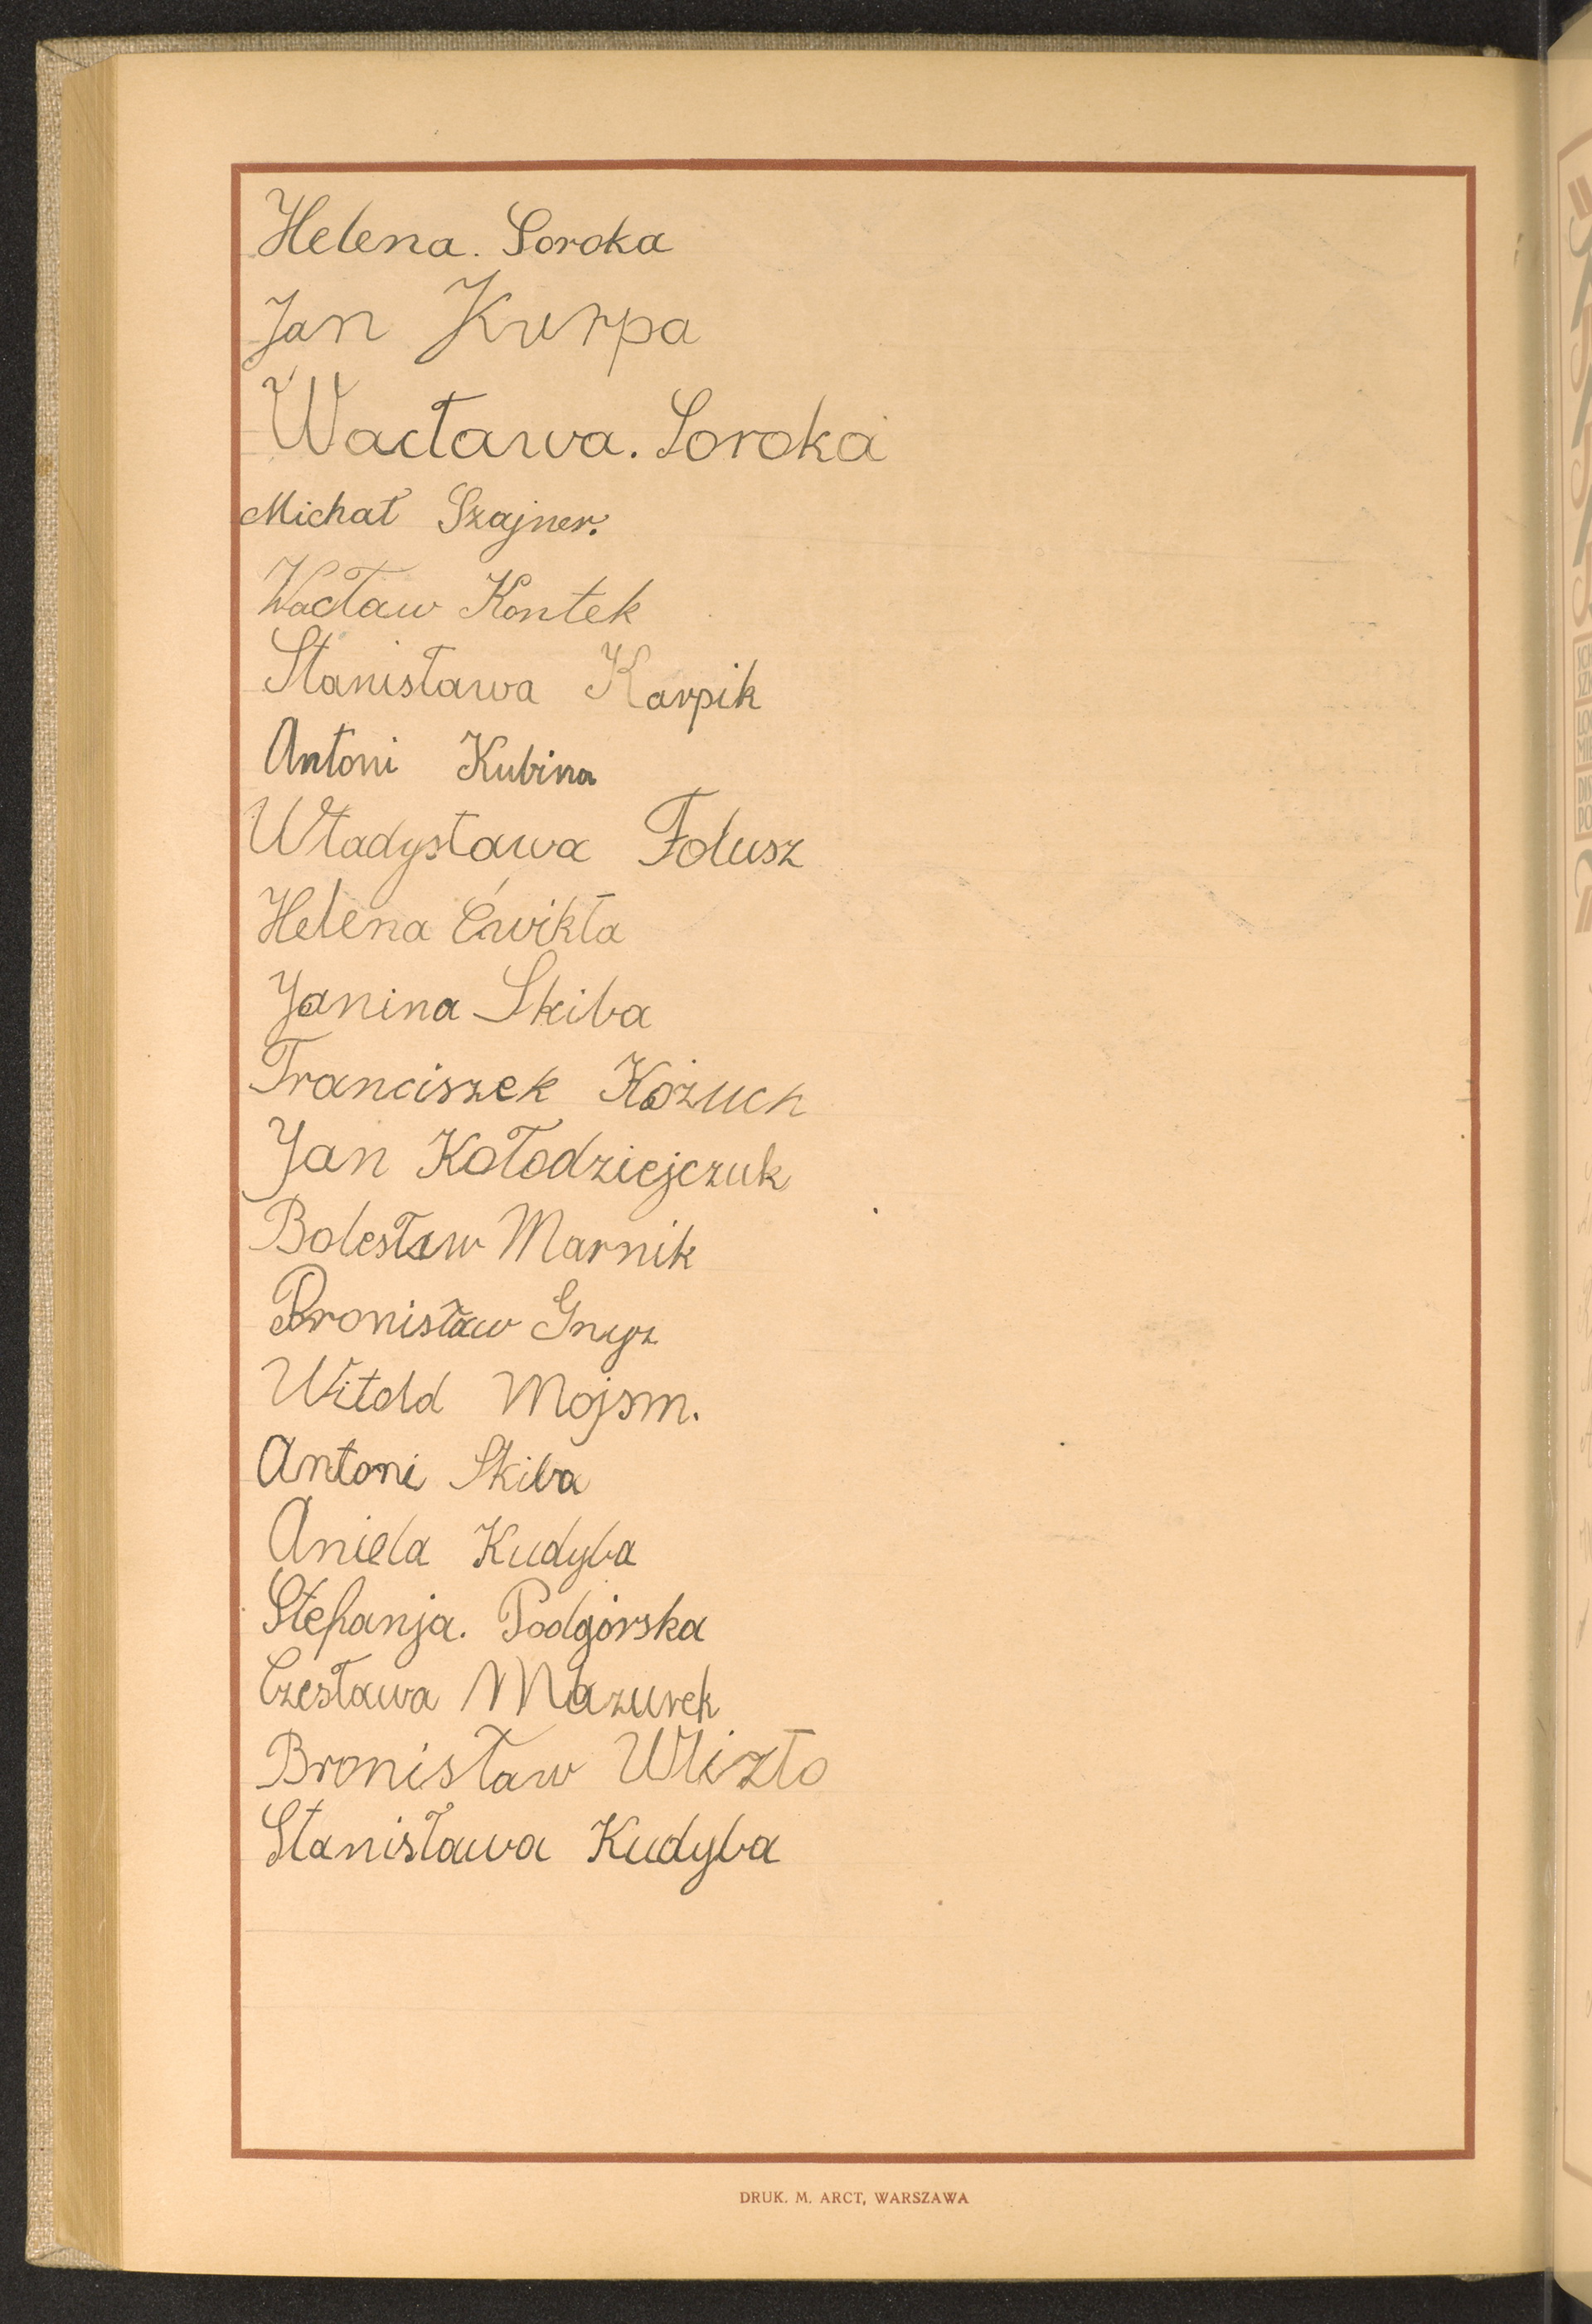 Helena. Soroka
Jan Kurpa
Wacława. Soroka
Michał Szajner.
Wacław Kontek
Stanisława Karpik
Antoni Kubina
Władysława Folusz
Helena Ćwikła
Janina Skiba
Franciszek Kożuch
Jan Kołodziejczuk
Bolesław Marnik
Bronisław Gnyz
Witold Mojsm.
Antoni Skiba
Aniela Kudyba
Stefanja. Podgórska
Czesława Mazurek
Bronisław Wlizło
Stanisława Kudyba
DRUK. M. ARCT, WARSZAWA